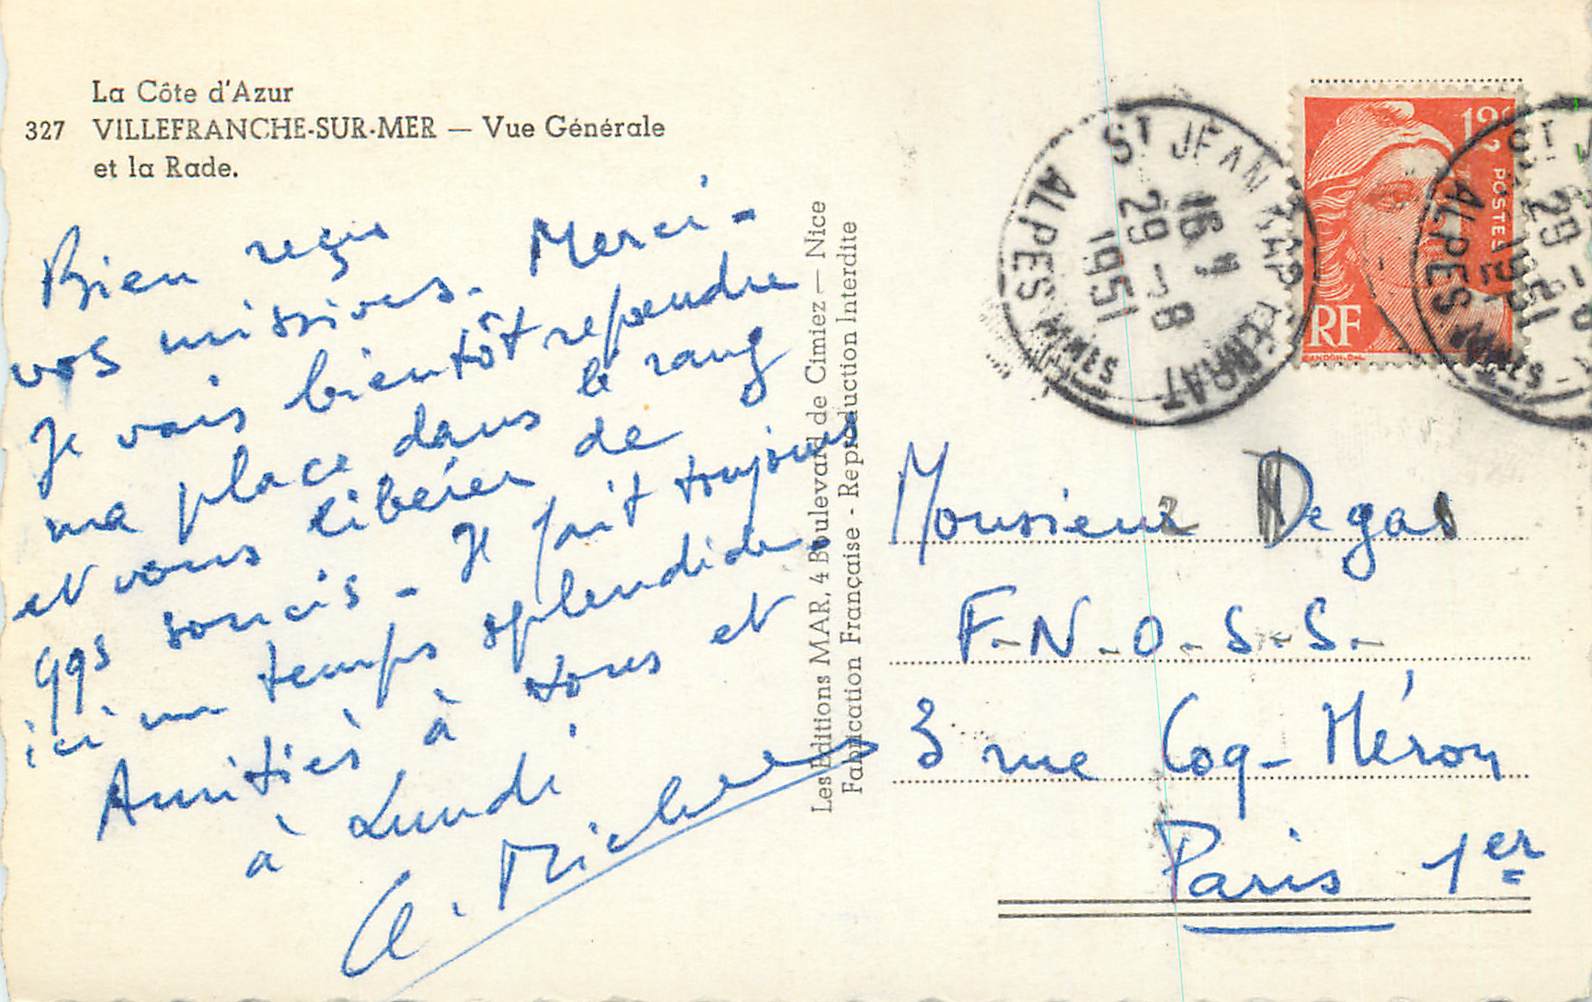 La Côte d'Azur
327 VILLEFRANCHE-SUR-MER — Vue Générale
et la Rade.
Bien reçu
vos missives. Merci -
Je vais bientôt reprendre
ma place dans le rang
et vous libérer de
qqs soucis - Il fait toujours
ici un temps splendide.
Amitiés à tous et
à Lundi
Les Editions MAR, 4 Boulevard de Cimiez — Nice
Fabrication Française - Reproduction Interdite
ST JEAN CAP FERRAT
16 H
29 - 8
1951
ALPES MMES
12F
POSTES
RF
GANDON. DEL.
ST J
29 - 8
1951
ALPES MMES
Monsieur Degas
F.N.O.S.S.
3 rue Coq-Héron
Paris 1er